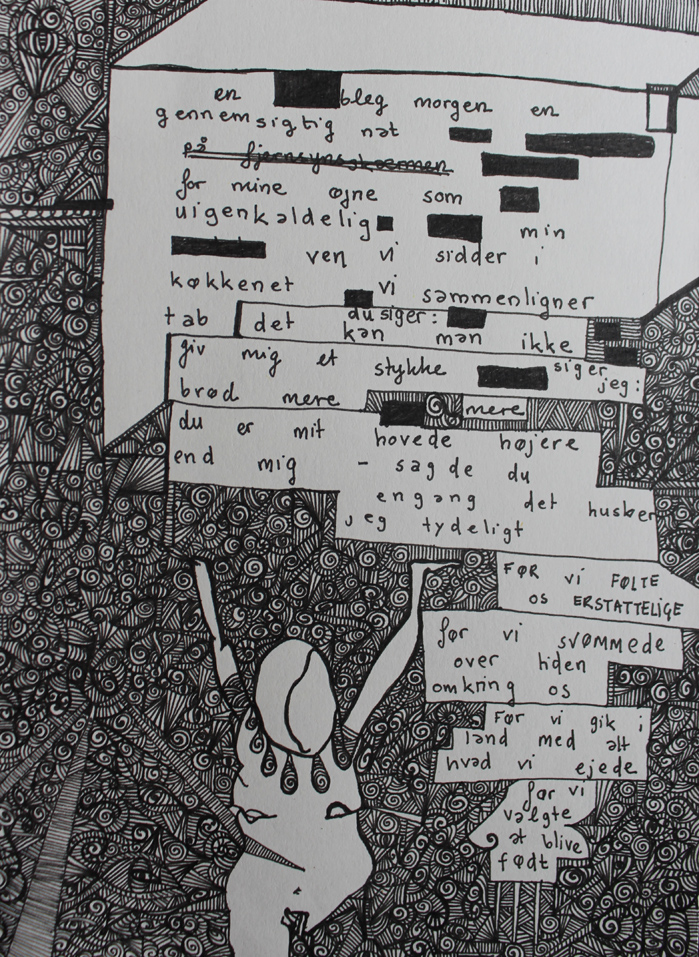 en bleg morgen en
gennemsigtig nat
på fjernsynsskærmen
for mine øjne som
uigenkaldelig min
ven vi sidder i
køkkenet vi sammenligner
tab du siger:
det kan man ikke
siger jeg:
giv mig et stykke
brød mere mere
du er mit hovede højere
end mig - sagde du
engang det husker
jeg tydeligt
FØR vi FØLTE
OS ERSTATTELIGE
før vi svømmede
over tiden
omkring os
Før vi gik i
land med alt
hvad vi ejede
før vi
valgte
at blive
født